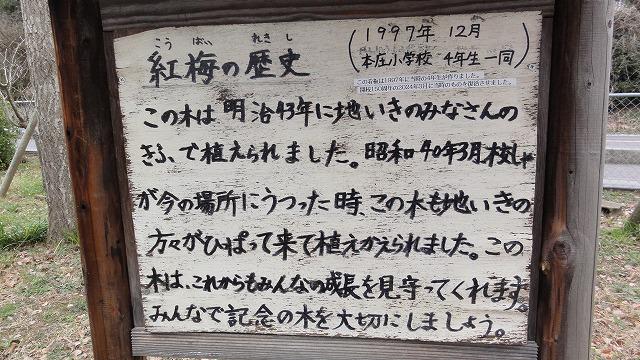 こうばい れきし
紅梅の歴史
(1997年 12月
本庄小学校 4年生一同)
この看板は1997年に当時の4年生が作りました。
開校150周年の2024年3月に当時のものを復活させました。
この木は明治43年に地いきのみなさんの
きふで植えられました。昭和40年3月校しゃ
が今の場所にうつった時、この木も地いきの
方々がひぱって来て植えかえられました。この
木は、これからもみんなの成長を見守ってくれます。
みんなで記念の木を大切にしましょう。